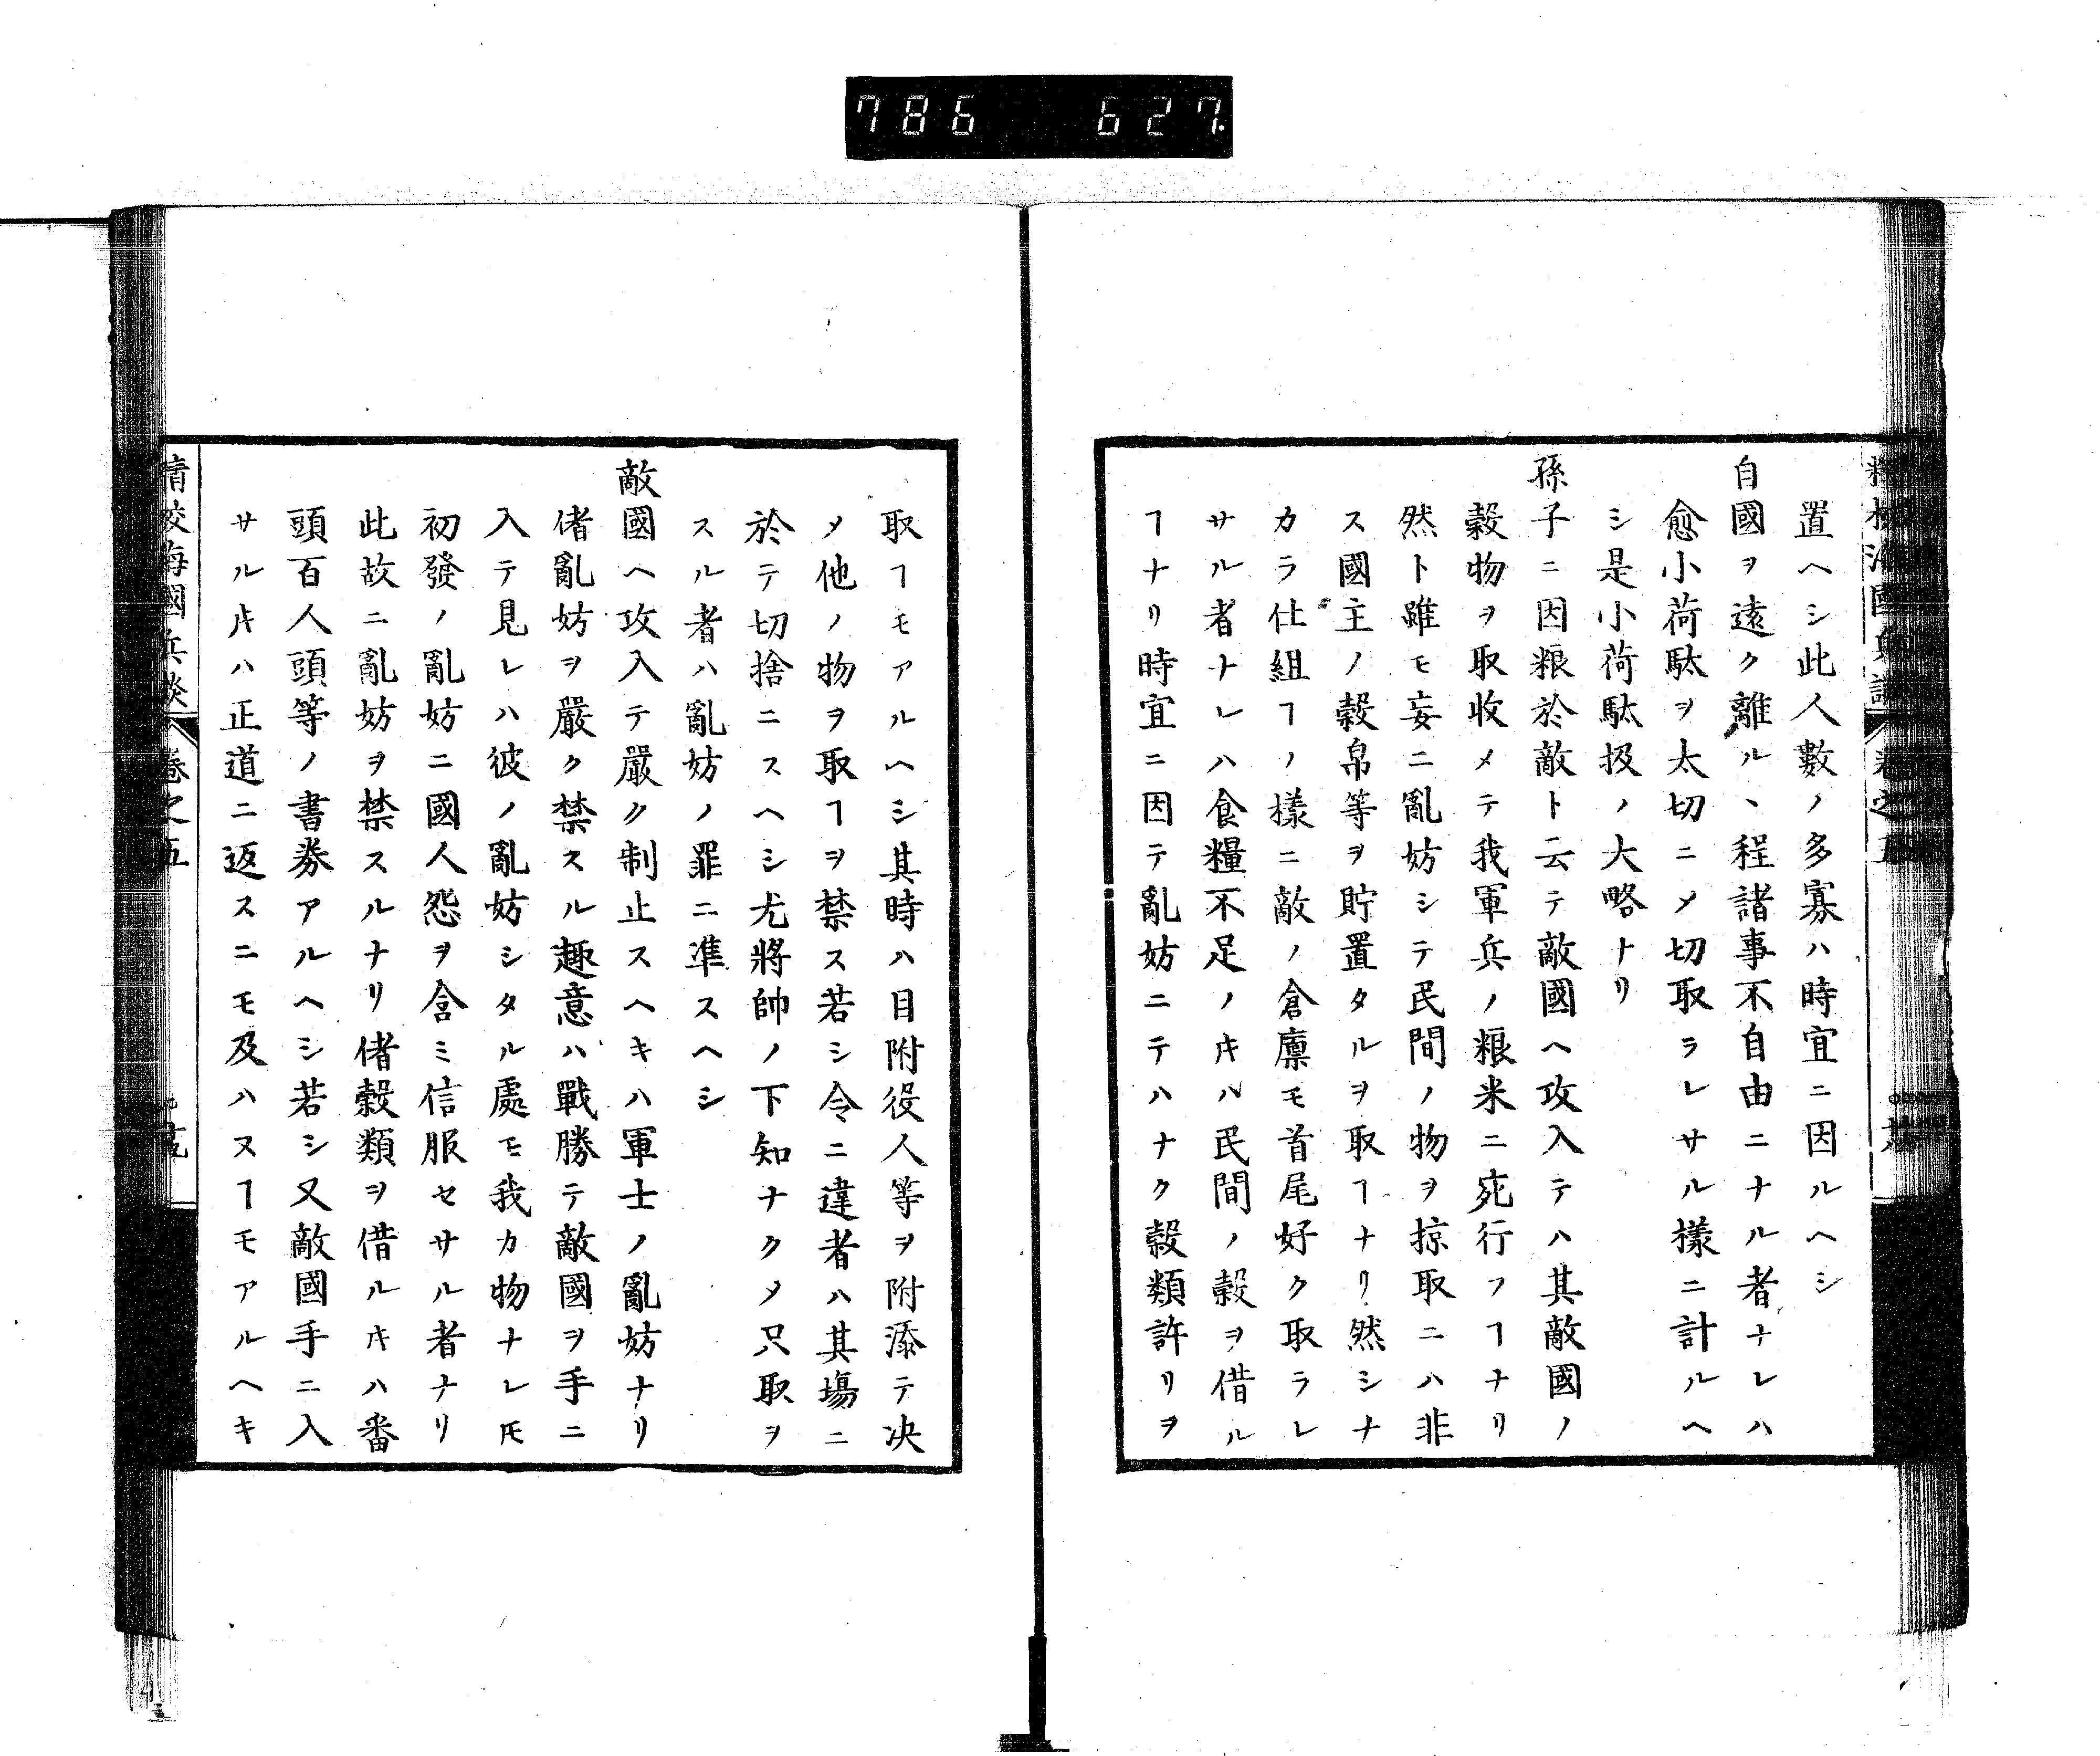 786 627
置ヘシ此人數ノ多寡ハ時宜ニ因ルヘシ
自國ヲ遠ク離ル丶程諸事不自由ニナル者ナレハ
愈小荷駄ヲ太切ニメ切取ラレサル樣ニ計ルヘ
シ是小荷駄扱ノ大略ナリ
孫子ニ因粮於敵ト云テ敵國ヘ攻入テハ其敵國ノ
穀物ヲ取收メテ我軍兵ノ粮米ニ宛行フヿナリ
然ト雖モ妄ニ亂妨シテ民間ノ物ヲ掠取ニハ非
ス國主ノ穀帛等ヲ貯置タルヲ取ヿナリ然シナ
カラ仕組ヿノ樣ニ敵ノ倉廩モ首尾好ク取ラレ
サル者ナレハ食糧不足ノキハ民間ノ穀ヲ借ル
ヿナリ時宜ニ因テ亂妨ニテハナク穀類許リヲ
取ヿモアルヘシ其時ハ目附役人等ヲ附添テ决
メ他ノ物ヲ取ヿヲ禁ス若シ令ニ違者ハ其塲ニ
於テ切捨ニスヘシ尤將帥ノ下知ナクメ只取ヲ
スル者ハ亂妨ノ罪ニ準スヘシ
敵國ヘ攻入テ嚴ク制止スヘキハ軍士ノ亂妨ナリ
偖亂妨ヲ嚴ク禁スル趣意ハ戰勝テ敵國ヲ手ニ
入テ見レハ彼ノ亂妨シタル處モ我カ物ナレ𪜈
初發ノ亂妨ニ國人怨ヲ含ミ信服セサル者ナリ
此故ニ亂妨ヲ禁スルナリ偖穀類ヲ借ルキハ番
頭百人頭等ノ書券アルヘシ若シ又敵國手ニ入
サルキハ正道ニ返スニモ及ハヌヿモアルヘキ
精校海國兵談 卷之五